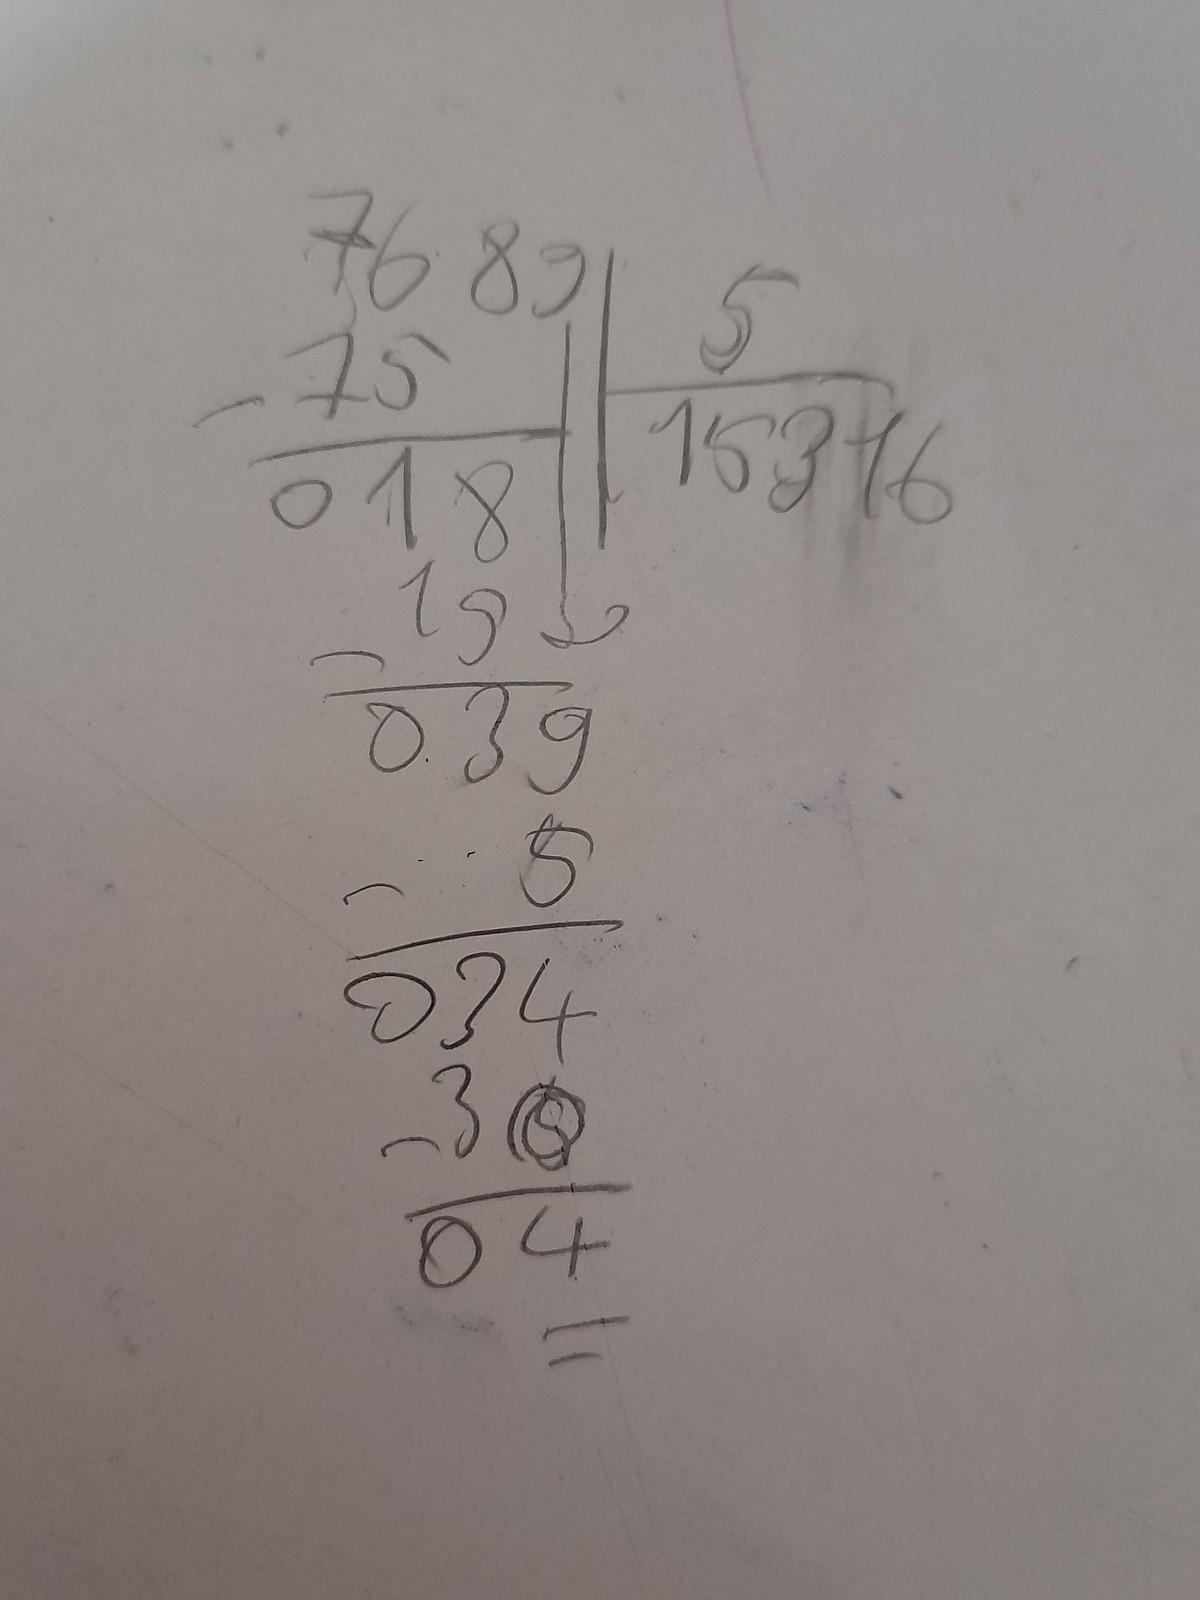 7689 5
- 75 15316
018
- 15
039
- 5
034
- 30
04
=